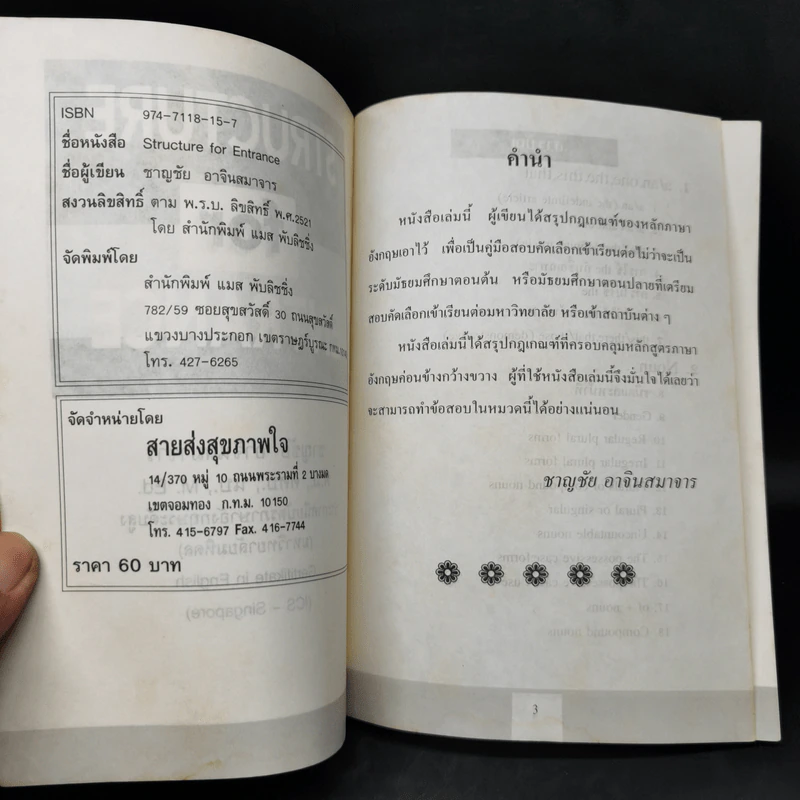 ISBN 974-7118-15-7
ชื่อหนังสือ Structure for Entrance
ชื่อผู้เขียน ชาญชัย อาจินสมาจาร
สงวนลิขสิทธิ์ ตาม พ.ร.บ. ลิขสิทธิ์ พ.ศ.2521
โดย สำนักพิมพ์ แมส พับลิชชิ่ง
จัดพิมพ์โดย
สำนักพิมพ์ แมส พับลิชชิ่ง
782/59 ซอยสุขสวัสดิ์ 30 ถนนสุขสวัสดิ์
แขวงบางปะกอก เขตราษฎร์บูรณะ
โทร. 427-6265
จัดจำหน่ายโดย
สายส่งสุขภาพใจ
14/370 หมู่ 10 ถนนพระรามที่ 2 บางมด
เขตจอมทอง ก.ท.ม. 10150
โทร. 415-6797 Fax. 416-7744
ราคา 60 บาท
คำนำ
หนังสือเล่มนี้ ผู้เขียนได้สรุปกฎเกณฑ์ของหลักภาษา
อังกฤษเอาไว้ เพื่อเป็นคู่มือสอบคัดเลือกเข้าเรียนต่อไม่ว่าจะเป็น
ระดับมัธยมศึกษาตอนต้น หรือมัธยมศึกษาตอนปลายที่เตรียม
สอบคัดเลือกเข้าเรียนต่อมหาวิทยาลัย หรือเข้าสถาบันต่าง ๆ
หนังสือเล่มนี้ได้สรุปกฎเกณฑ์ที่ครอบคลุมหลักสูตรภาษา
อังกฤษค่อนข้างกว้างขวาง ผู้ที่ใช้หนังสือเล่มนี้จึงมั่นใจได้เลยว่า
จะสามารถทำข้อสอบในหมวดนี้ได้อย่างแน่นอน
ชาญชัย อาจินสมาจาร
3